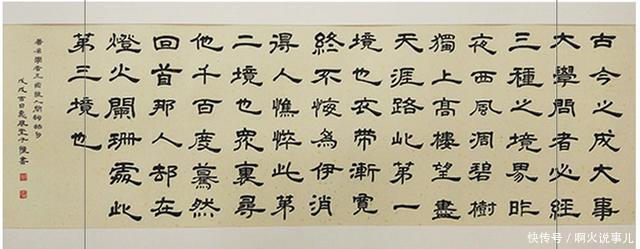 古今之成大事
大學問者必經
三種之境界昨
夜西風凋碧樹
獨上高樓望盡
天涯路此第一
境也衣帶漸寬
終不悔為伊消
得人憔悴此第
二境也眾裏尋
他千百度驀然
回首那人却在
燈火闌珊處此
第三境也
人間詞話句
戊戌吉日
快传号/啊火说事儿